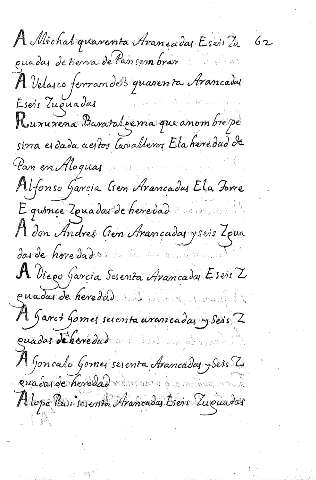 A Michal quarenta Arançadas Eseis Zu 62
guadas de tierra de Pan sembrar
A Velasco ferrandes quarenta Arancadas
Eseis Zuguadas
que anombre
sima es dada aestos Ela heredad de
Pan en
Alfonso Garcia Cien Arancadas Ela Torre
E quince Zguadas de heredad
A don Andres Cien Arancadas y seis Zgua
das de heredad
A Diego Garcia Sesenta Arancadas E seis Z
guadas de heredad
A Garci Gomes sesenta arancadas y Seis Z
guadas de heredad
A Gonçalo Gomes sesenta Arancadas y Seis Z
guadas de heredad
A lope sesenta Arancadas Eseis Zuguadas